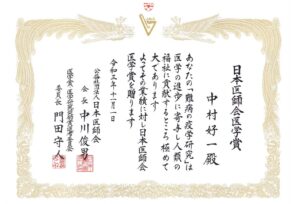 日本医師会医学賞
中村好一殿
あなたの「難病の疫学研究」は
医学の進歩に寄与し人類の
福祉に貢献するところ極めて
大であります
よってその業績に対し日本医師会
医学賞を贈ります
令和三年十一月一日
公益社団法人日本医師会
会長 中川俊男
委員長 門田守人